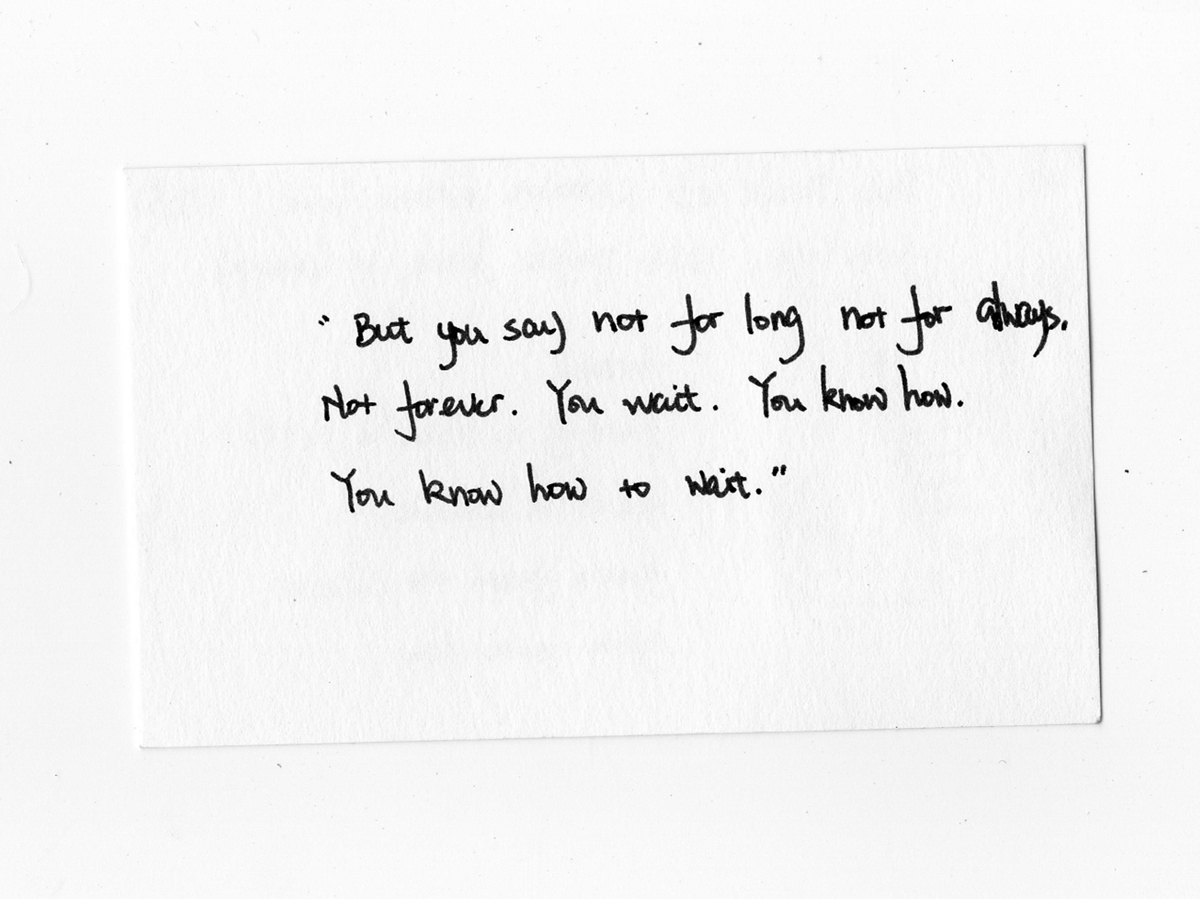 "But you say not for long not for always.
Not forever. You wait. You know how.
You know how to wait."